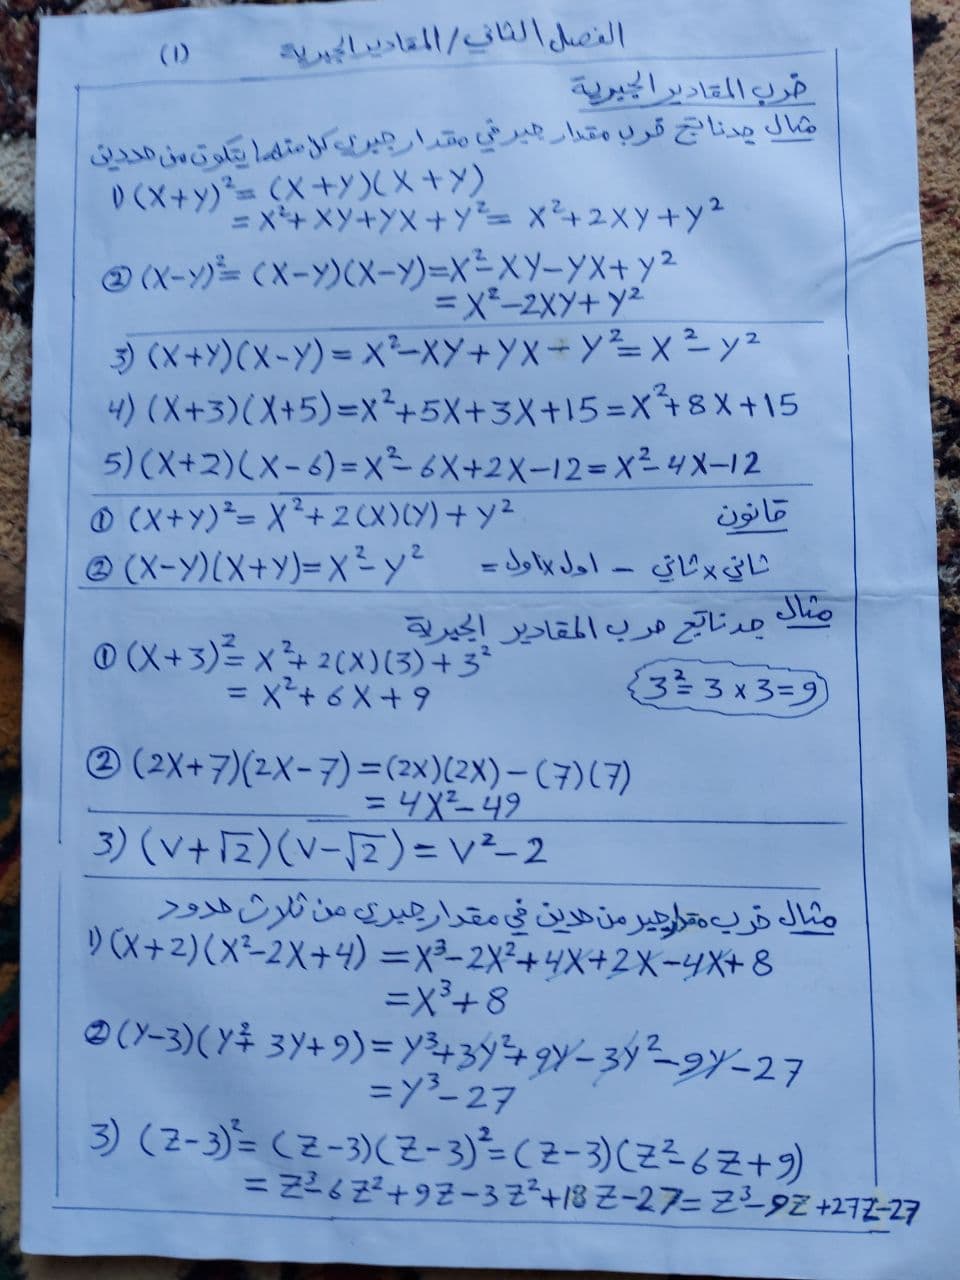 (1) الفصل الثاني / المقادير الجبرية
ضرب المقادير الجبرية
مثال جد ناتج ضرب مقدار جبري في مقدار جبري كل منهما يتكون من حدين
1) (X+Y)²= (X+Y)(X+Y)
= X²+XY+YX+Y²= X²+2XY+Y²
② (X-Y)²= (X-Y)(X-Y)=X²-XY-YX+Y²
= X²-2XY+Y²
3) (X+Y)(X-Y)= X²-XY+YX-Y²=X²-Y²
4) (X+3)(X+5)=X²+5X+3X+15=X²+8X+15
5) (X+2)(X-6)=X²-6X+2X-12=X²-4X-12
① (X+Y)²= X²+2(X)(Y)+Y² قانون
② (X-Y)(X+Y)=X²-Y² = اول x اول - ثاني x ثاني
مثال جد ناتج ضرب المقادير الجبرية
① (X+3)²= X²+2(X)(3)+3²
= X²+6X+9 3²=3x3=9
② (2X+7)(2X-7)=(2X)(2X)-(7)(7)
= 4X²-49
3) (V+√2)(V-√2)=V²-2
مثال ضرب مقدار جبر من حدين في مقدار جبري من ثلاث حدود
1) (X+2)(X²-2X+4)=X³-2X²+4X+2X-4X+8
=X³+8
② (Y-3)(Y²+3Y+9)=Y³+3Y²+9Y-3Y²-9Y-27
=Y³-27
3) (Z-3)²= (Z-3)(Z-3)²=(Z-3)(Z²-6Z+9)
= Z³-6Z²+9Z-3Z²+18Z-27=Z³-9Z+27Z-27